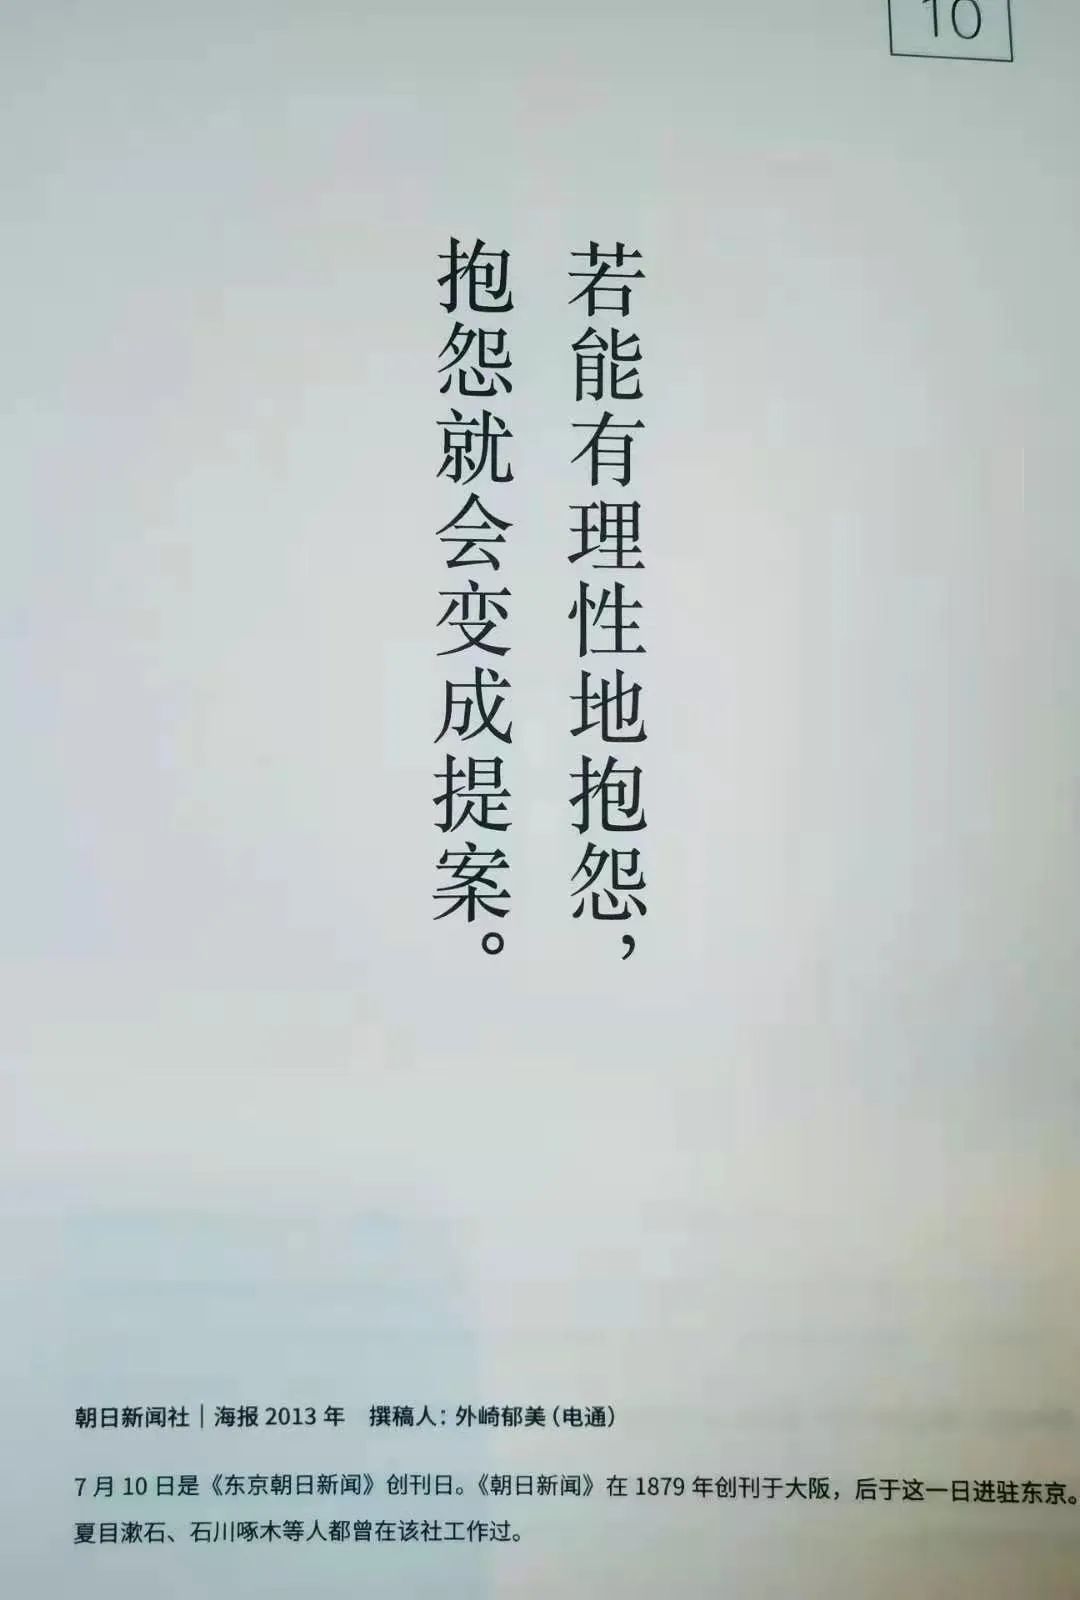 10
若能有理性地抱怨，
抱怨就会变成提案。
朝日新闻社｜海报 2013 年　撰稿人：外崎郁美（电通）
7 月 10 日是《东京朝日新闻》创刊日。《朝日新闻》在 1879 年创刊于大阪，后于这一日进驻东京。
夏目漱石、石川啄木等人都曾在该社工作过。